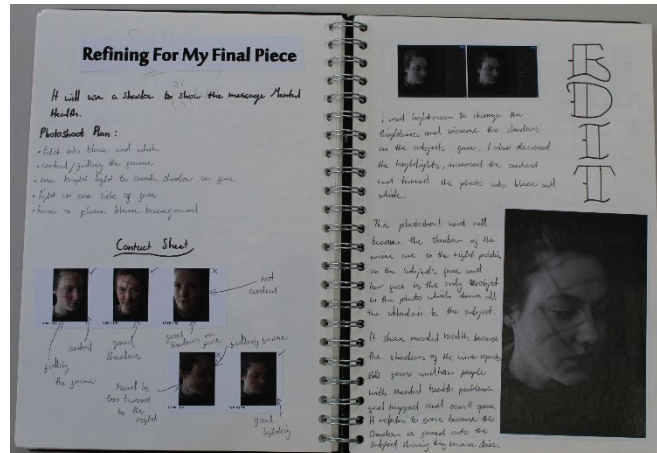 Refining For My Final Piece
It will use a shadow to show the message Mental
Health.
Photoshoot Plan :
• Edit into black and white
• central / filling the frame
• use bright light to create shadow on face
• light on one side of face
• have a plane background
Contact Sheet
not
central
central
good
shadows
good
shadows on
face
filling
the frame
filling frame
head is
too turned
to the
right
good
lightning
EDIT
I used lightroom to change the
brightness and increase the shadows
on the subjects face. I also decreased
the highlights, increased the contrast
and turned the photo into black and
white.
This photoshoot went well
because the shadow of the
are in the right position
on the subjects face and
her face is the only subject
in the photo which draws all
the attention to the subject.
It shows mental health because
the shadows of the
people
with mental health problems
feel trapped and can't
It to because the
shadow is onto the
subject showing they have no